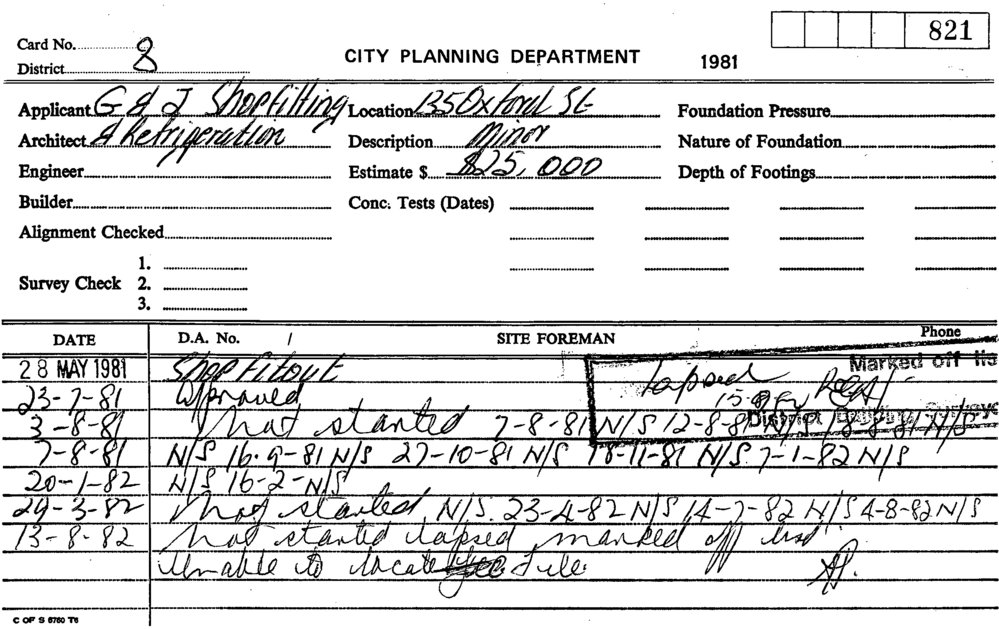 821
Card No. 8
District
CITY PLANNING DEPARTMENT 1981
Applicant G & J Shopfitting Location 135 Oxford St Foundation Pressure
Architect & Refrigeration Description Minor Nature of Foundation
Engineer Estimate $ $25,000 Depth of Footings
Builder Conc. Tests (Dates)
Alignment Checked
1.
Survey Check 2.
3.
DATE D.A. No. SITE FOREMAN Phone
28 MAY 1981 Shop Fitout Lapsed Marked off lis
23-7-81 Approved
3-8-81 Not started 7-8-81 N/S 12-8-81 N/S 18-8-81 N/S
District Building Surveyo
7-8-81 N/S 16-9-81 N/S 27-10-81 N/S 18-11-81 N/S 7-1-82 N/S
20-1-82 N/S 16-2- N/S
29-3-82 Not started N/S. 23-4-82 N/S 14-7-82 N/S 4-8-82 N/S
13-8-82 Not started lapsed marked off list
Unable to locate file.
C OF S 6760 T6